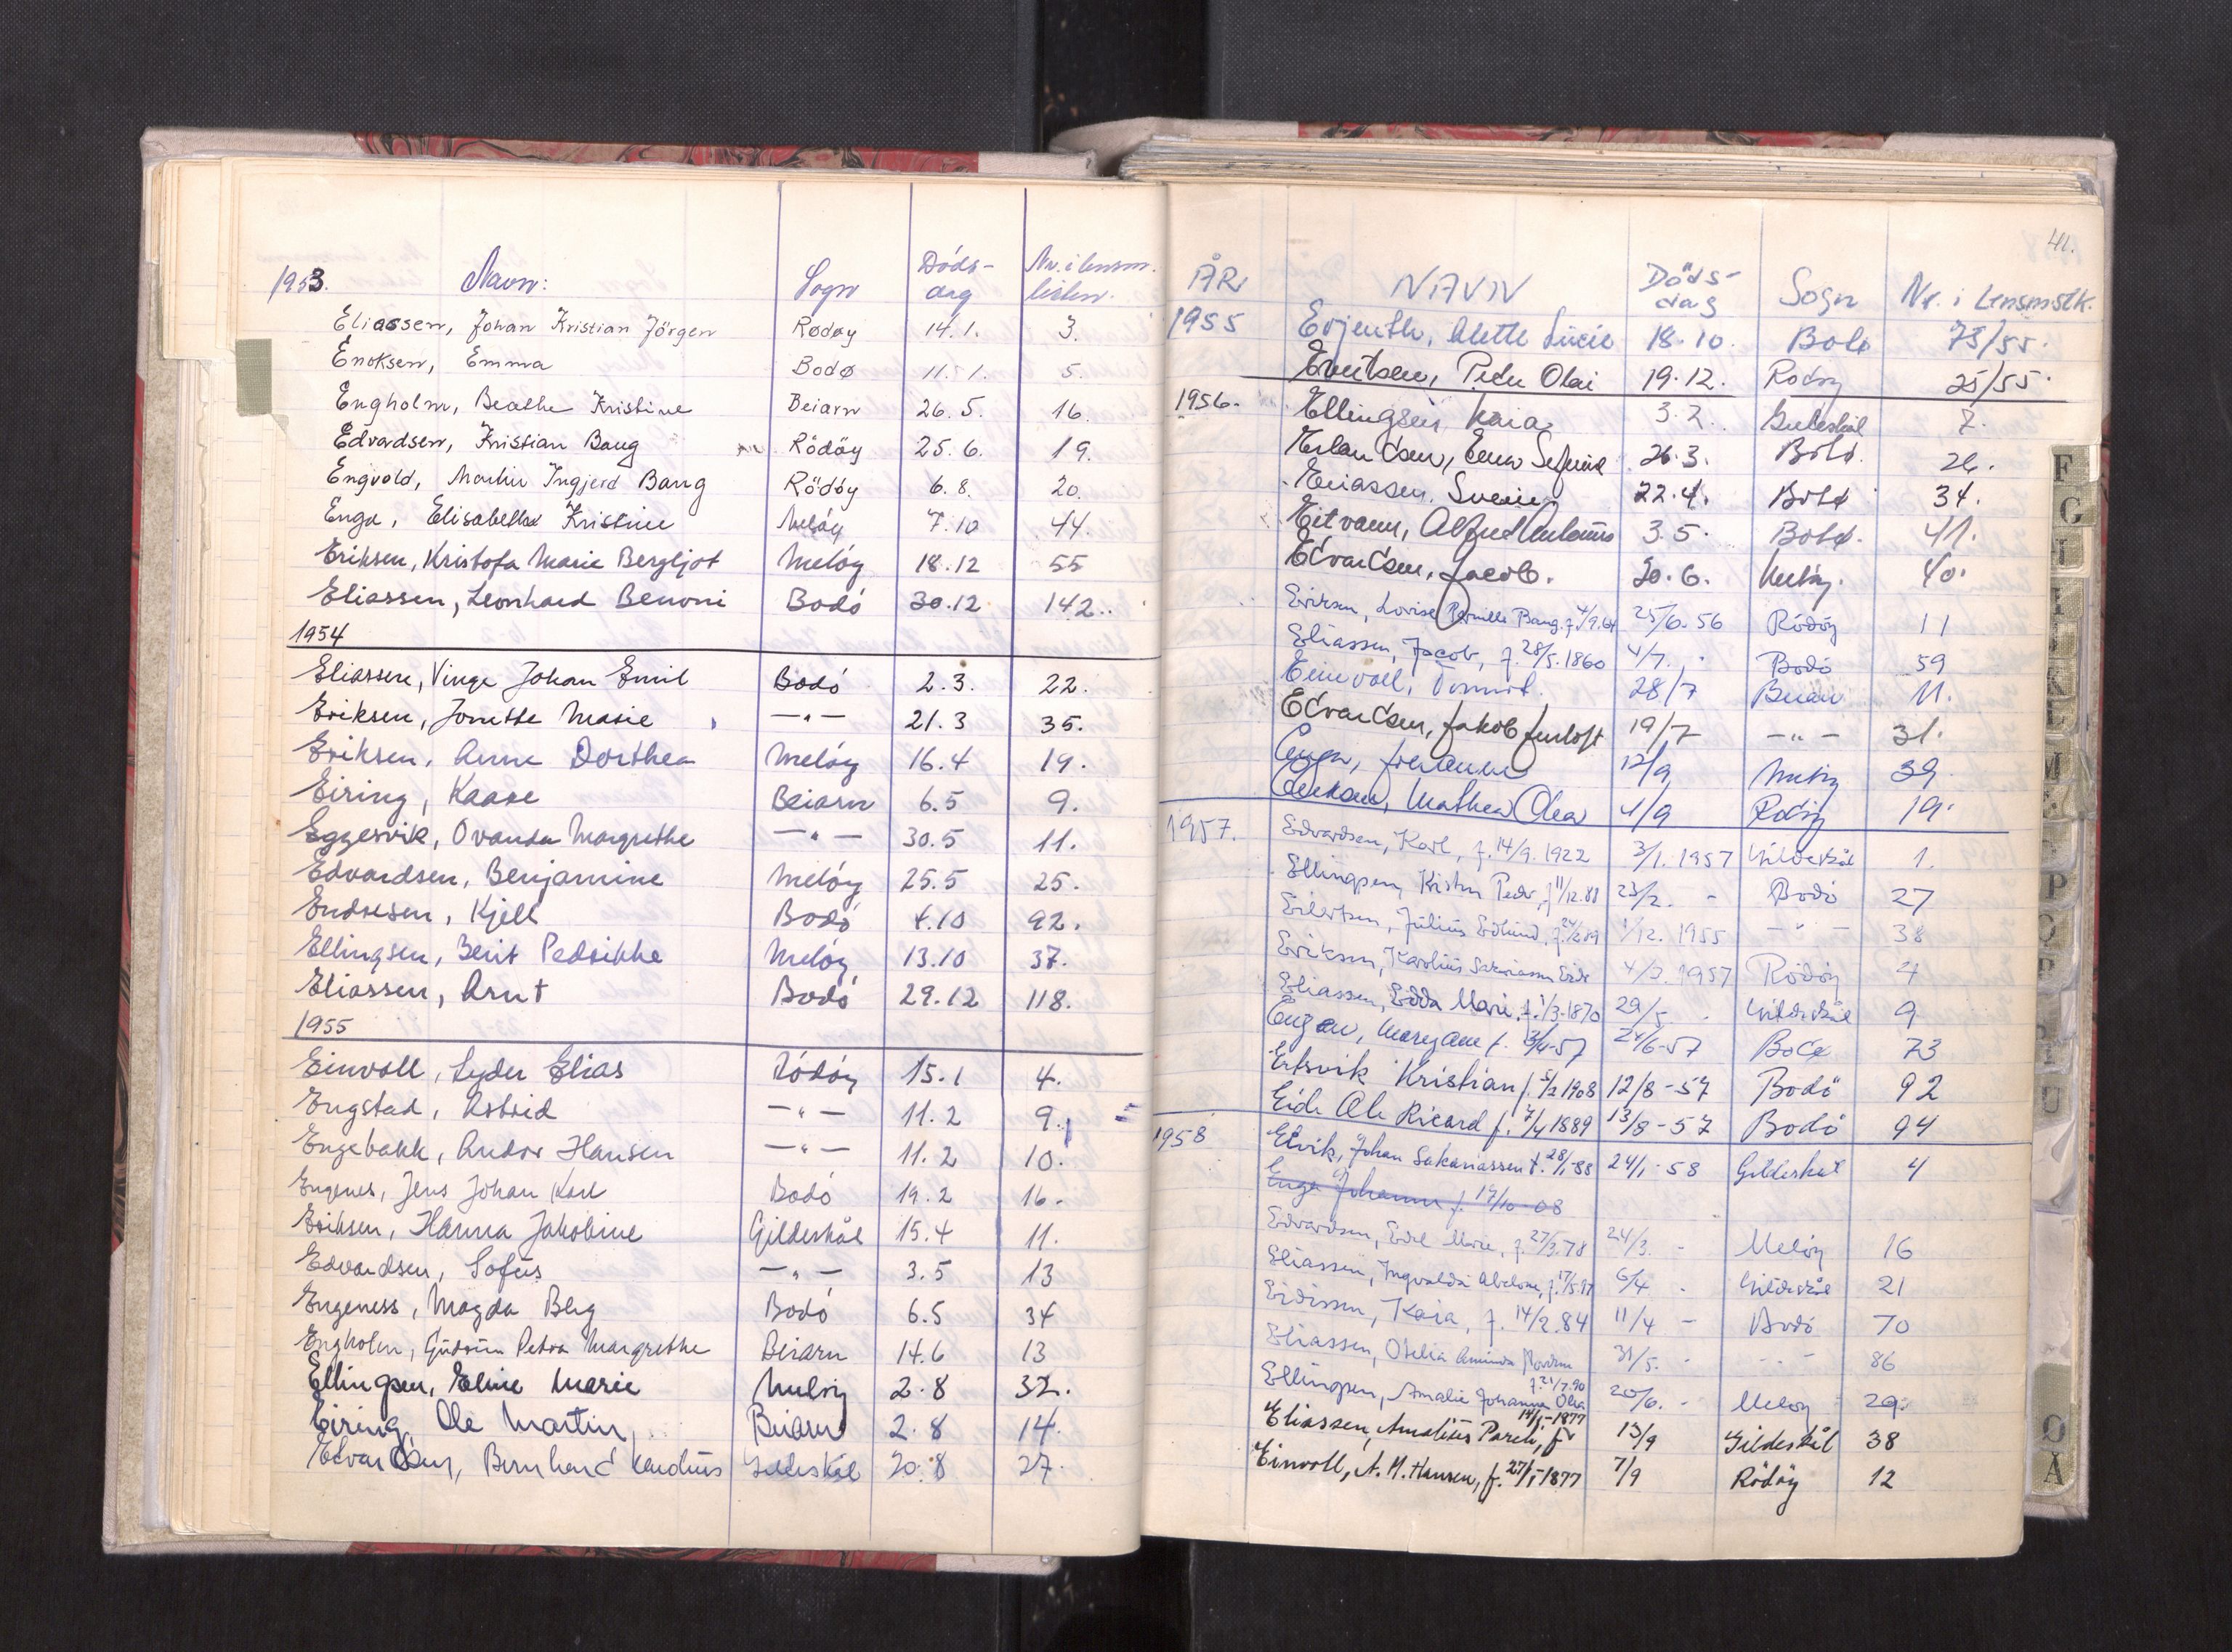 1953. Navn: Sogn Döds-dag Nr. i lensm. listen.
Eliassen, Johan Kristian Jörgen Rødøy 14.1. 3.
Enoksen, Emma Bodø 11.1. 5.
Engholm, Beathe Kristine Beiarn 26.5. 16.
Edvardsen, Kristian Bang Rödöy 25.6. 19.
Engvold, Martin Ingjerd Bang Rödöy 6.8. 20.
Enga, Elisabeth Kristine Melöy 7.10 44.
Eriksen, Kristofa Marie Bergljot Melöy 18.12 55
Eliassen, Leonhard Benoni Bodó 30.12 142.
1954
Eliassen, Vinge Johan Emil Bodó 2.3. 22.
Eriksen, Jonette Marie —"— 21.3 35.
Eriksen, Anne Dorthea Melóy 16.4 19.
Eiring, Kaare Beiarn 6.5 9.
Eggesvik, Ovanda Margrethe —"— 30.5 11.
Edvardsen, Benjamine Melóy 25.5 25.
Endresen, Kjell Bodó 4.10 92.
Ellingsen, Berit Pedrikke Melóy 13.10 37.
Eliassen, Arnt Bodó 29.12 118.
1955
Einvoll, Lyder Elias Ródóy 15.1 4.
Engstad, Astrid —"— 11.2 9.
Engebakk, Andor Hansen —"— 11.2 10.
Engenes, Jens Johan Karl Bodó 19.2 16.
Eriksen, Hanna Jakobine Gildeskål 15.4 11.
Edvardsen, Sofus —"— 3.5 13
Engeness, Magda Berg Bodó 6.5 34
Engholm, Gudrun Petra Margrethe Beiarn 14.6 13
Ellingsen, Eline Marie Meløy 2.8 32.
Eiring, Ole Martin Beiarn 2.8 14.
Edvardsen, Bernhard Gildeskål 20.8 27.
41.
ÅR. NAVN Döds-dag Sogn Nr. i Lensmstk.
1955 Evjenth, Alette Lucie 18.10. Bodø 73/55.
Evertsen, Peder Olai 19.12. Rødøy 25/55.
1956. Ellingsen Kaia 3.2. Gildeskål 7.
Erlandsen, 26.3. Bodø. 26.
Eliassen, 22.4. Bodø 34.
Eitvann, Alfred 3.5. Bodø. 41.
Edvardsen, Jacob. 20.6. Meløy. 40.
Eriksen, Lovise Pernille Bang. f. 4/9.64 25/6.56 Rödöy 11
Eliassen, Jacob, f. 28/5.1860 4/7. " Bodö 59
Einvoll, 28/7 Beiarn 11.
Edvardsen, Jakob 19/7 —"— 31.
Enga, Johanne 12/9 Meløy 39.
Eriksen, Mathea Olea 4/9 Rødøy 19.
1957. Edvardsen, Karl, f. 14/9.1922 3/1.1957 Gildeskål 1.
Ellingsen, Kristen Peder, f. 11/12.88 23/2. - Bodö 27
Eilertsen, Julius Edlund, f. 24/2.89 1/12.1955 —"— 38
Eriksen, Karolius Sakariassen Eide 4/3.1957 Rödöy 4
Eliassen, Edda Marie, f. 1/3.1870 29/5. Gildeskål 9
Engan, f. 13/4-57 24/6-57 Bodø 73
Ertsvik Kristian f. 5/2 1908 12/8-57 Bodö 92
Eide Ole Ricard f. 7/4 1889 13/8-57 Bodö 94
1958 Elvik, Johan Sakariassen f. 28/1-88 24/1-58 Gildeskål 4
Enga Johanne f. 14/10-08
Edvardsen, Edel Marie, f. 27/3.78 24/3. - Melöy 16
Eliassen, Ingvalda Abelone, f. 17/5.87 6/4 . Gildeskål 21
Eidissen, Kaia, f. 14/2.84 11/4 - Bodö 70
Eliassen, Otelia Aminda 31/5. - —"— 86
Ellingsen, Amalie Johanna Olea f. 21/7.90 20/6. - Melöy 29.
Eliassen, Amalius Pareli, f. 14/1-1877 13/9 Gildeskål 38
Einvoll, A. M. Hansen, f. 27/1-1877 7/9 Rödöy 12
F
G
I
J
K
L
M
P
U
O
Å